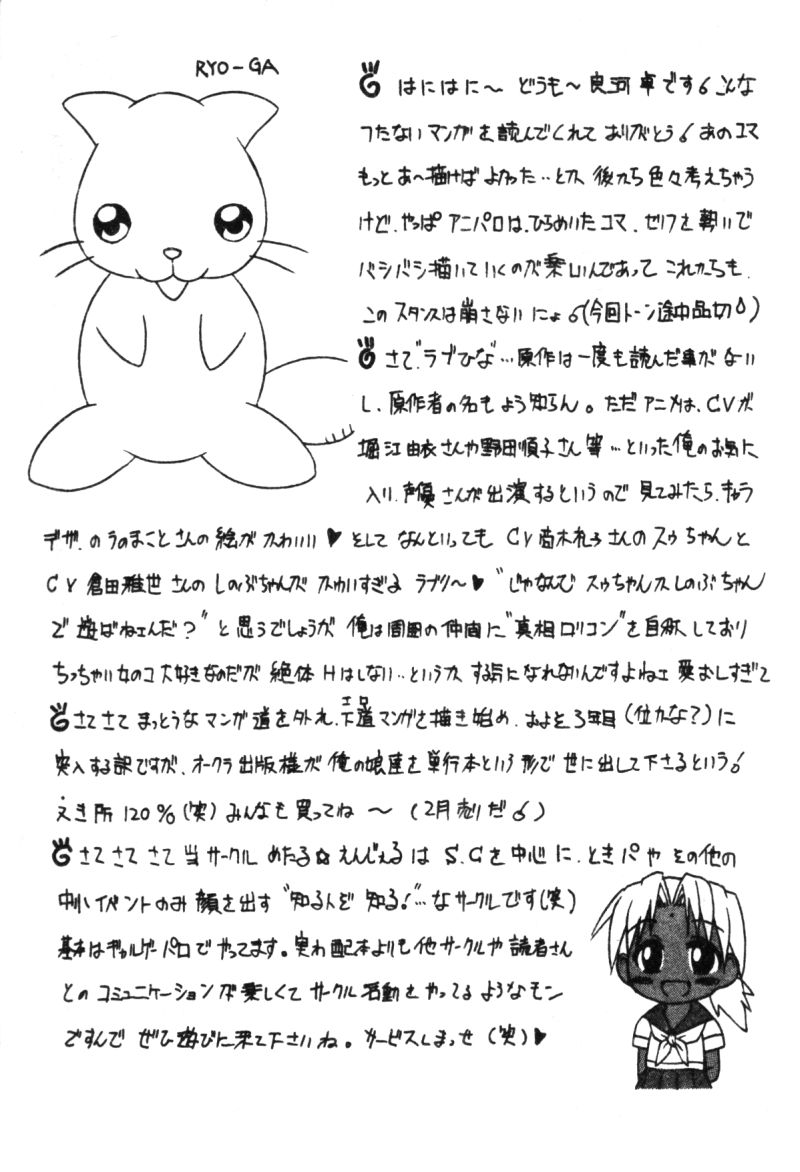 RYO-GA
はにはに〜 どうも〜 良河卓です こんな
つたないマンガを読んでくれて ありがとう あのコマ
もっとあ〜描けば よかった…とか 後から色々考えちゃう
けど、やっぱ アニパロは、ひらめいたコマ、セリフを勢いで
バシバシ描いていくのが楽しいんであって これからも、
このスタンスは崩さないにょ (今回トーン途中品切)
さて、"ラブひな"…原作は一度も読んだ事がない
し、原作者の名もよう知らん。ただアニメは、CVが
堀江由衣さんや野田順子さん等…といった俺のお気に
入り声優さんが出演するというので見てみたら、キャラ
デザ.のうのまことさんの絵がかわいい♥ そして なんといっても CV高木礼子さんのスゥちゃんと
CV 倉田雅世さんのしのぶちゃんが かわいすぎる ラブリ〜♥ "じゃなんで スゥちゃんかしのぶちゃん
で 遊ばねェんだ?"と思うでしょうが 俺は周囲の仲間に"真相ロリコン"を自称しており
ちっちゃい女のコ大好きなのだが 絶体Hはしない…というか する気になれないんですよねェ 愛おしすぎて
さてさて まっとうなマンガ道を外れ、下道マンガを描き始め、およそ3年目(位かな?)に
エロ
突入する訳ですが、オークラ出版様が 俺の娘達を単行本という形で 世に出して下さるという
えき所 120%(笑) みんなも買ってね 〜 (2月売りだ)
さてさてさて 当サークル めたる☆えんじぇるは S.Cを中心に、ときパや その他の
中小イベントのみ顔を出す "知る人ぞ 知る!"…なサークルです(笑)
基本はギャルゲーパロで やってます。実わ 配本よりも他サークルや読者さん
とのコミュニケーションが楽しくてサークル活動をやってるようなモン
ですんで ぜひ遊びに来て下さいね。サービスしまっせ(笑)♥